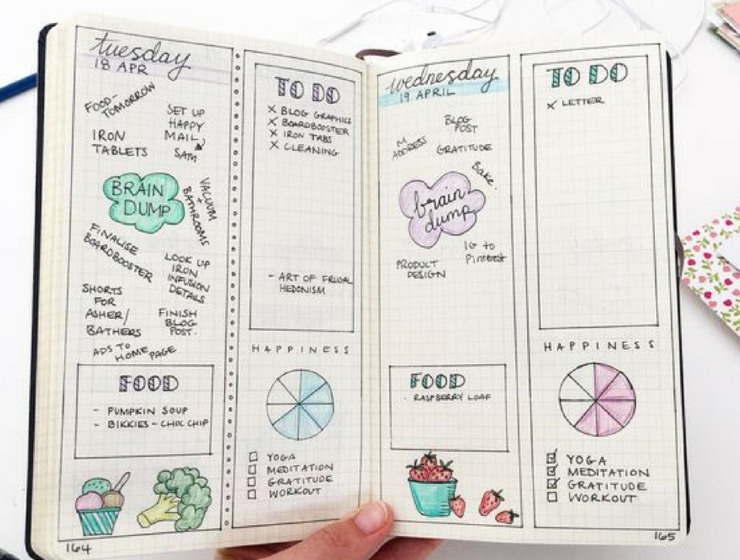 tuesday
18 APR
FOOD-
TOMORROW
SET UP
HAPPY
MAIL
SAM
IRON
TABLETS
BRAIN
DUMP
VACUUM
+
BATHROOMS
FINALISE
BOARDBOOSTER
LOOK UP
IRON
INFUSION
DETAILS
SHORTS
FOR
ASHER/
BATHERS
FINISH
BLOG
POST.
ADS TO
HOME PAGE
FOOD
- PUMPKIN SOUP
- BIKKIES - CHOC CHIP
164
TO DO
X BLOG GRAPHICS
X BOARDBOOSTER
X IRON TABS
X CLEANING
- ART OF FRUGAL
HEDONISM
HAPPINESS
YOGA
MEDITATION
GRATITUDE
WORKOUT
wednesday
19 APRIL
BLOG
POST
M
ADDRESS
GRATITUDE
Bake
brain
dump
IG to
Pinterest
PRODUCT
DESIGN
FOOD
- RASPBERRY LOAF
TO DO
X LETTER
HAPPINESS
YOGA
MEDITATION
GRATITUDE
WORKOUT
165